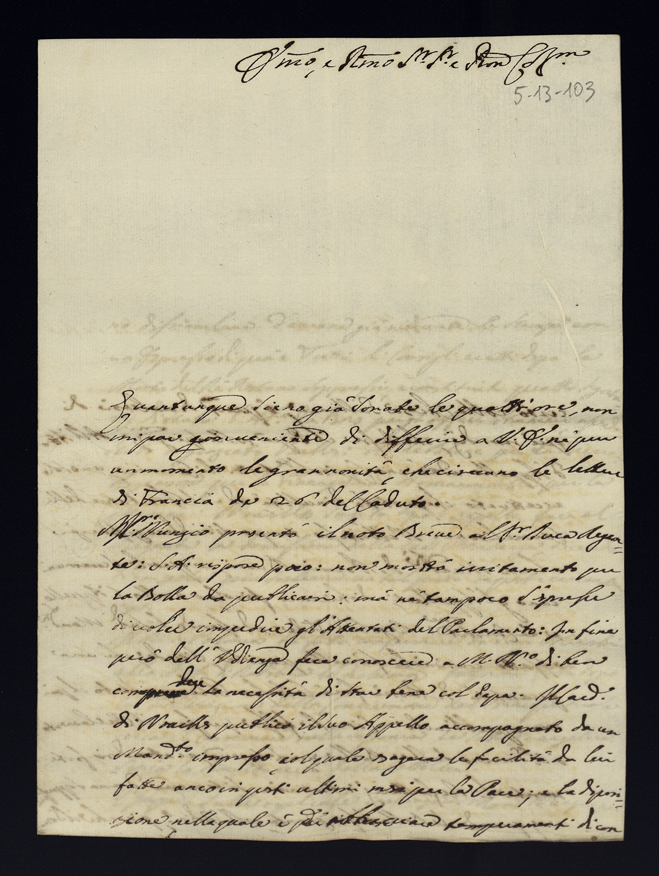 Emo, e Rmo Sr. Sr. e Pron Colmo
5-13-103
Quantunque sieno già sonate le quattr'ore, non
mi par conveniente di differire a V. E. nè pur
un momento le gran novità, che ci sono le lettere
di Francia de 26 del caduto.
Mr. Nunzio presentò il noto Breve al Sr. Duca Regen=
te: S. A. rispose poco: non mostrò irritamento per
la Bolla da publicarsi: mà nè tampoco s'espresse
di voler impedire gl'Attentati del Parlamento: In fine
però dell'Udienza fece conoscere a M. N.o di ben
comprendere la necessità di star bene col Papa. Il Card.
di Noailles publicò il suo Appello accompagnato da un
Mand.to impresso, col quale la facilità da lui
fatte anco in questi ultimi mesi per la Pace; e la disposi=
zione nella quale è di abbracciare temperamenti di con